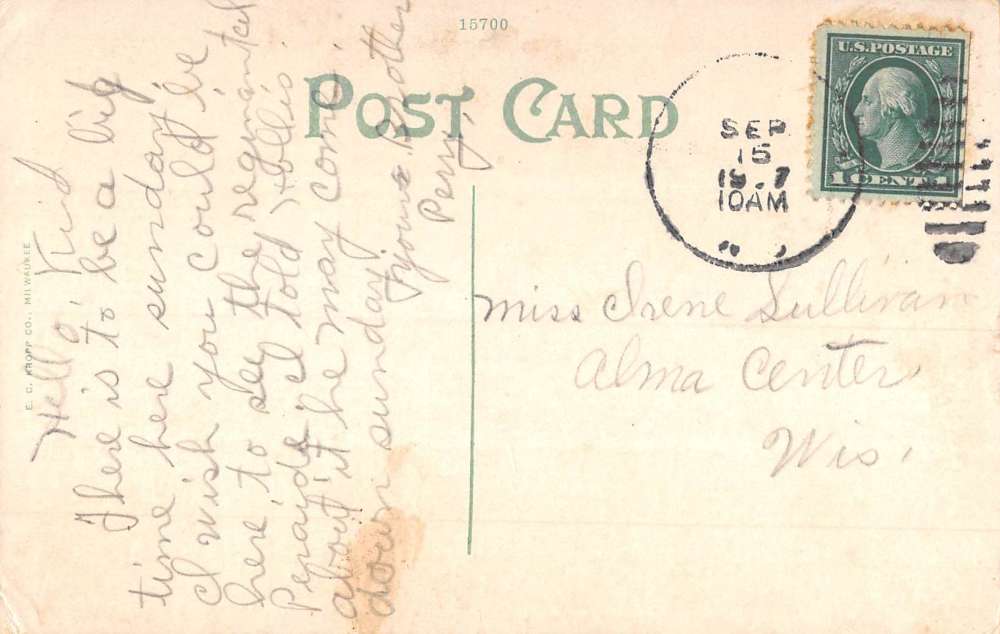 15700
POST CARD
U.S. POSTAGE
1 CENT 1
SEP
15
10AM
E. C. KROPP CO., MILWAUKEE
Hello, Kid
There is to be a big
time here sunday,
I wish you could be
here, to see the regimental
Perade, I told Hollis
about it he may come
down sunday.
Your Brother
Perry,
Miss Irene Sullivan
Alma Center,
Wis,